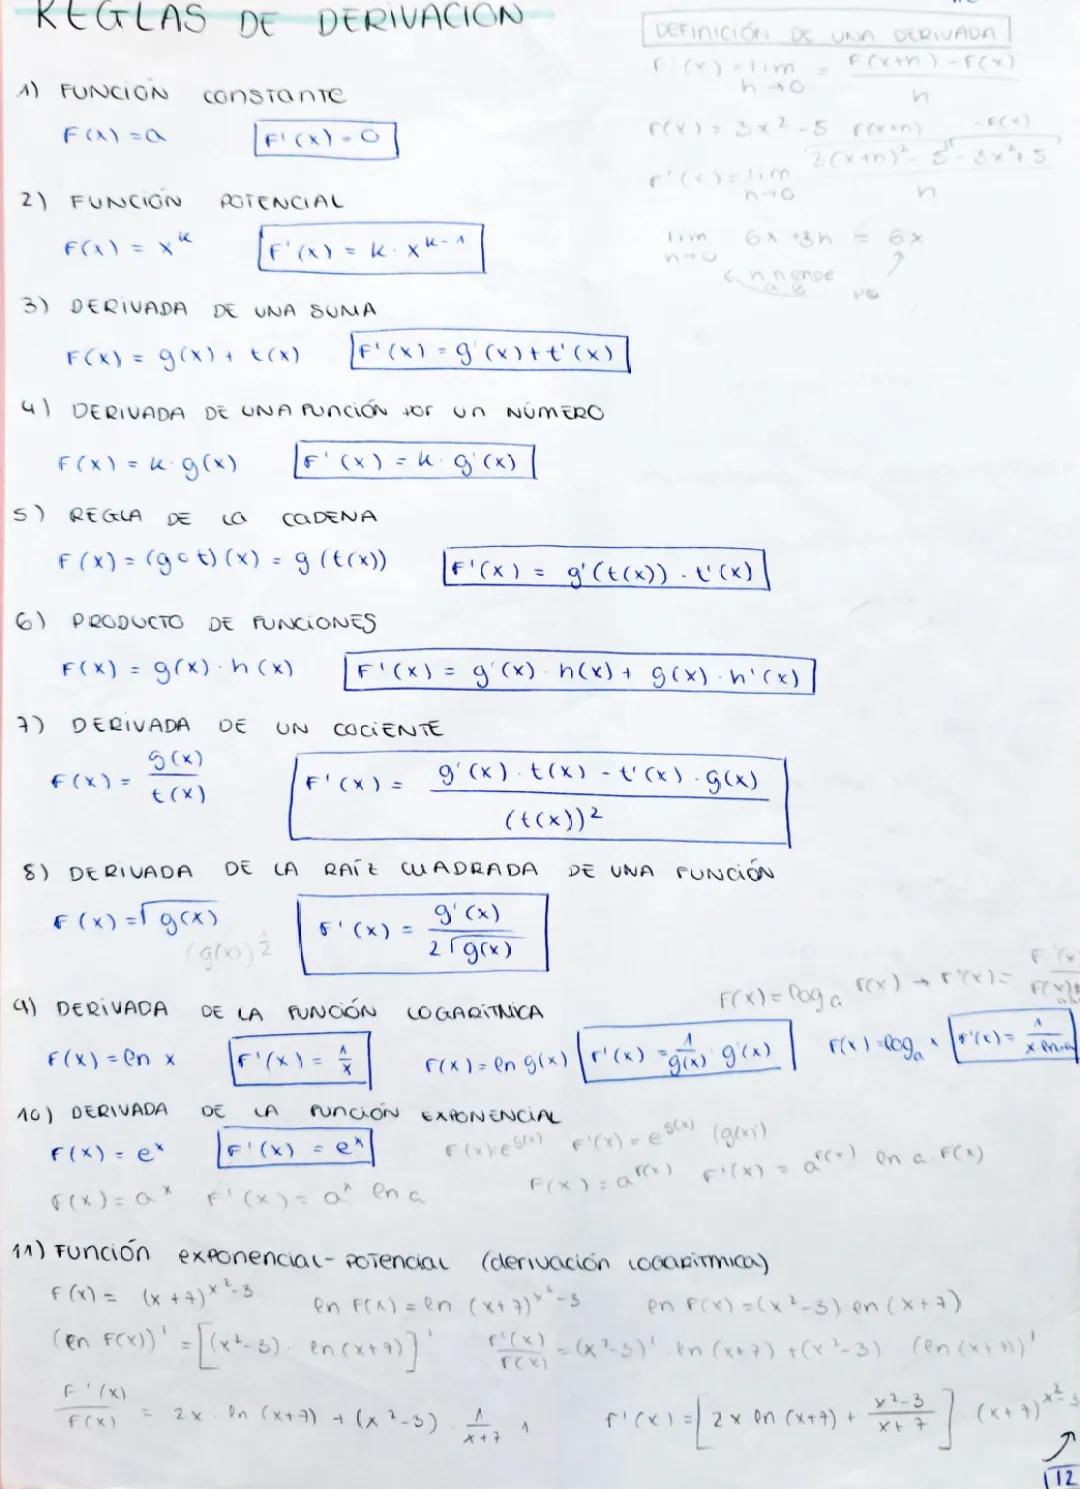 REGLAS DE DERIVACIÓN
DEFINICIÓN DE UNA DERIVADA
F'(x) = lim h→0 = F(x+h) - F(x) / h
F(x) = 3x² - 5
F(x+h) - F(x)
F'(x) = lim h→0 3(x+h)² - 5 - 3x² + 5 / h
lim h→0 6x + 3h = 6x
1) FUNCIÓN CONSTANTE
F(x) = a F'(x) = 0
2) FUNCIÓN POTENCIAL
F(x) = x^k F'(x) = k · x^k-1
3) DERIVADA DE UNA SUMA
F(x) = g(x) + t(x) F'(x) = g'(x) + t'(x)
4) DERIVADA DE UNA FUNCIÓN POR UN NÚMERO
F(x) = k · g(x) F'(x) = k · g'(x)
5) REGLA DE LA CADENA
F(x) = (g∘t)(x) = g(t(x)) F'(x) = g'(t(x)) · t'(x)
6) PRODUCTO DE FUNCIONES
F(x) = g(x) · h(x) F'(x) = g'(x) · h(x) + g(x) · h'(x)
7) DERIVADA DE UN COCIENTE
F(x) = g(x) / t(x) F'(x) = g'(x) · t(x) - t'(x) · g(x) / (t(x))²
8) DERIVADA DE LA RAÍZ CUADRADA DE UNA FUNCIÓN
F(x) = √g(x) F'(x) = g'(x) / 2√g(x)
(g(x))^1/2
F(x) = log_a F(x) → F'(x) =
9) DERIVADA DE LA FUNCIÓN LOGARÍTMICA
F(x) = ln x F'(x) = 1/x F(x) = ln g(x) F'(x) = 1/g(x) · g'(x) F(x) = log_a x F'(x) = 1 / x ln a
10) DERIVADA DE LA FUNCIÓN EXPONENCIAL
F(x) = e^x F'(x) = e^x F(x) = e^g(x) F'(x) = e^g(x) (g(x)')
F(x) = a^x F'(x) = a^x ln a F(x) = a^F(x) F'(x) = a^F(x) ln a · F(x)
11) FUNCIÓN exponencial-potencial (derivación logarítmica)
F(x) = (x+7)^x²-3 ln F(x) = ln (x+7)^x²-3 ln F(x) = (x²-3) ln (x+7)
(ln F(x))' = [(x²-3) · ln (x+7)]' F'(x)/F(x) = (x²-3)' · ln (x+7) + (x²-3) (ln (x+7))'
F'(x)/F(x) = 2x · ln (x+7) + (x²-3) · 1/x+7 · 1 F'(x) = [2x ln (x+7) + x²-3/x+7] · (x+7)^x²-3
12